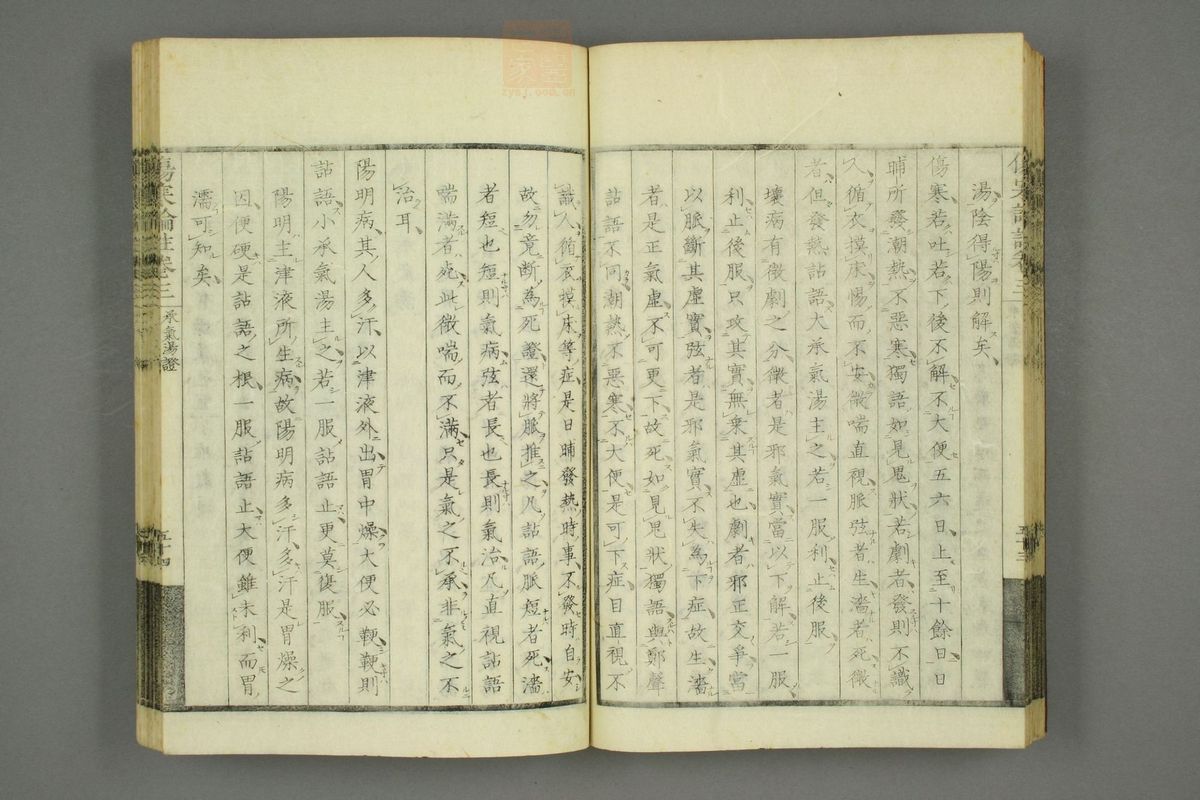 湯陰得陽則解矣
傷寒若吐若下後不解不大便五六日上至十餘日日
晡所發潮熱不惡寒獨語如見鬼狀若劇者發則不識
人循衣摸床惕而不安微喘直視脈弦者生濇者死微
者但發熱詀語大承氣湯主之若一服利止後服
壞病有微劇之分微者是邪氣實當以下解若一服
利止後服只攻其實無乗其虛也劇者邪正交爭當
以脈斷其虛實弦者是邪氣實不失為下症故生濇
者是正氣虛不可更下故死如見鬼狀獨語與鄭聲
詀語不同潮熱不惡寒不大便是可下症目直視不
識人循衣摸床等症是日晡發熱時事不發時自安
故勿竟断為死證還將脈推之凡詀語脈短者死濇
者短也短則氣病弦者長也長則氣治凡直視詀語
喘滿者死此微喘而不滿只是氣之不承非氣之不
治耳
陽明病其人多汗以津液外出胃中燥大便必鞕鞕則
詀語小承氣湯主之若一服詀語止更莫復服
陽明主津液所生病故陽明病多汗多汗是胃燥之
因便硬是詀語之根一服詀語止大便雖未利而胃
濡可知矣
傷寒論註卷三
承氣湯證
五十四